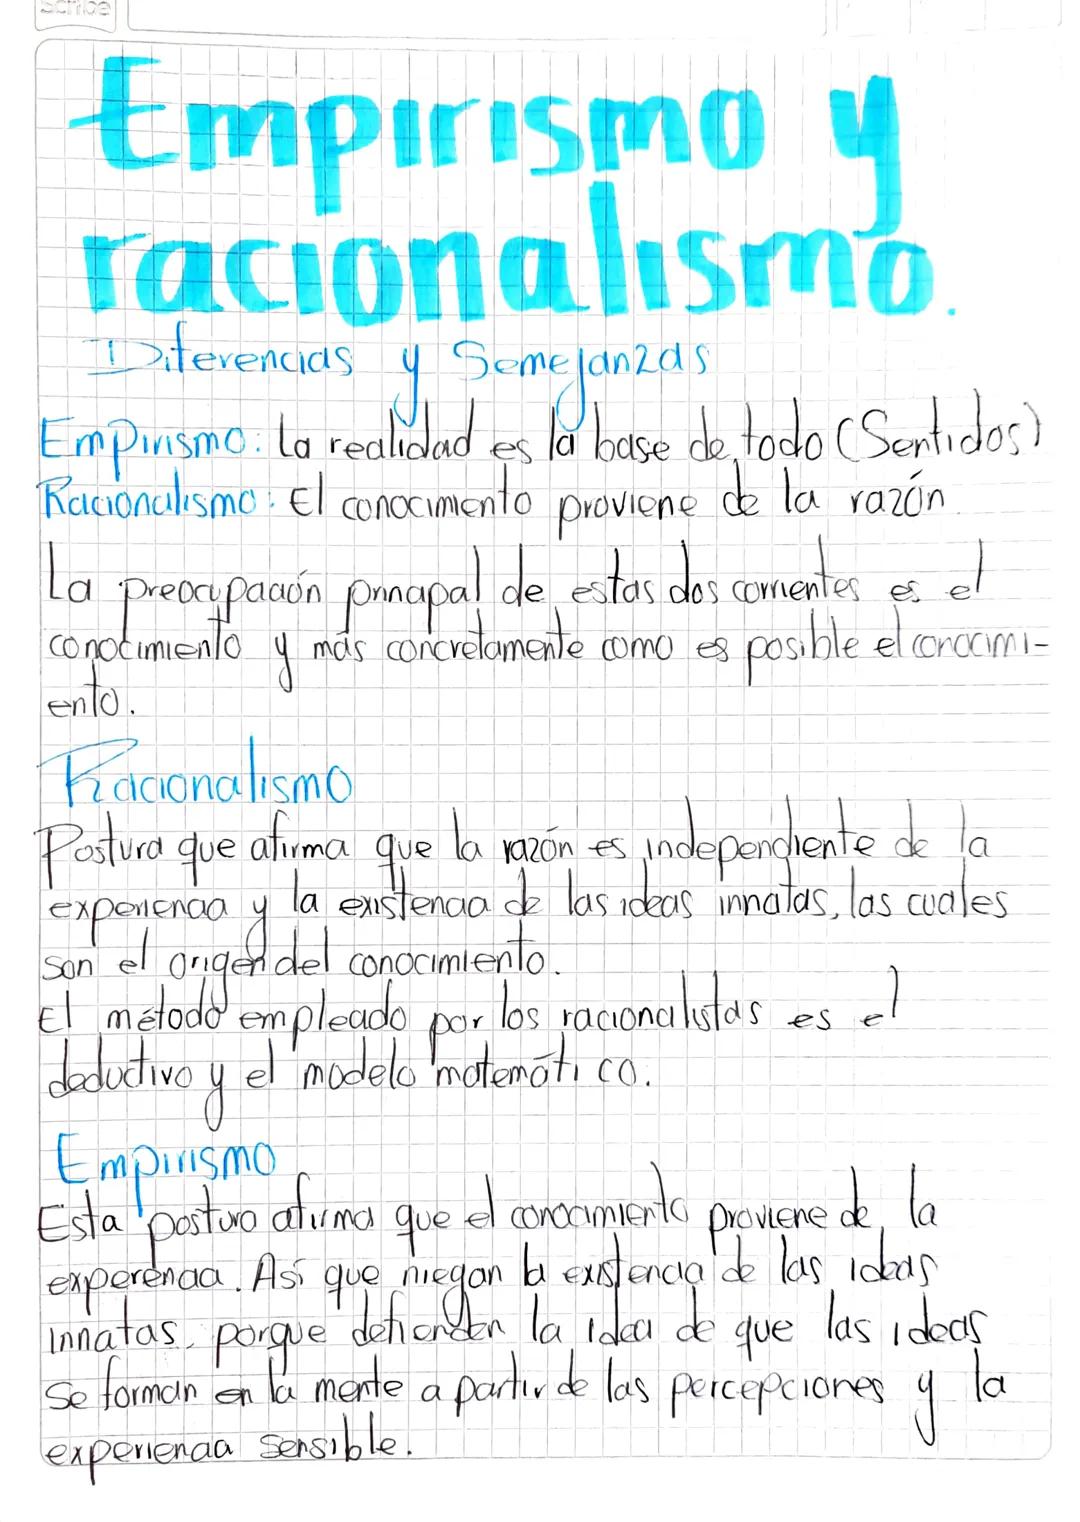 Scribe
Empirismo y
racionalismo.
Diferencias y Semejanzas
Empirismo: La realidad es la base de todo (Sentidos)
Racionalismo: El conocimiento proviene de la razón.
La preocupación principal de estas dos corrientes es el
conocimiento y más concretamente como es posible el conocimi-
ento.
Racionalismo
Postura que afirma que la razón es independiente de la
experiencia y la existencia de las ideas innatas, las cuales
son el origen del conocimiento.
El método empleado por los racionalistas es el
deductivo y el modelo matemático.
Empirismo
Esta postura afirma que el conocimiento proviene de la
experencia. Así que niegan la existencia de las ideas
innatas, porque defienden la idea de que las ideas
se forman en la mente a partir de las percepciones y la
experiencia sensible.